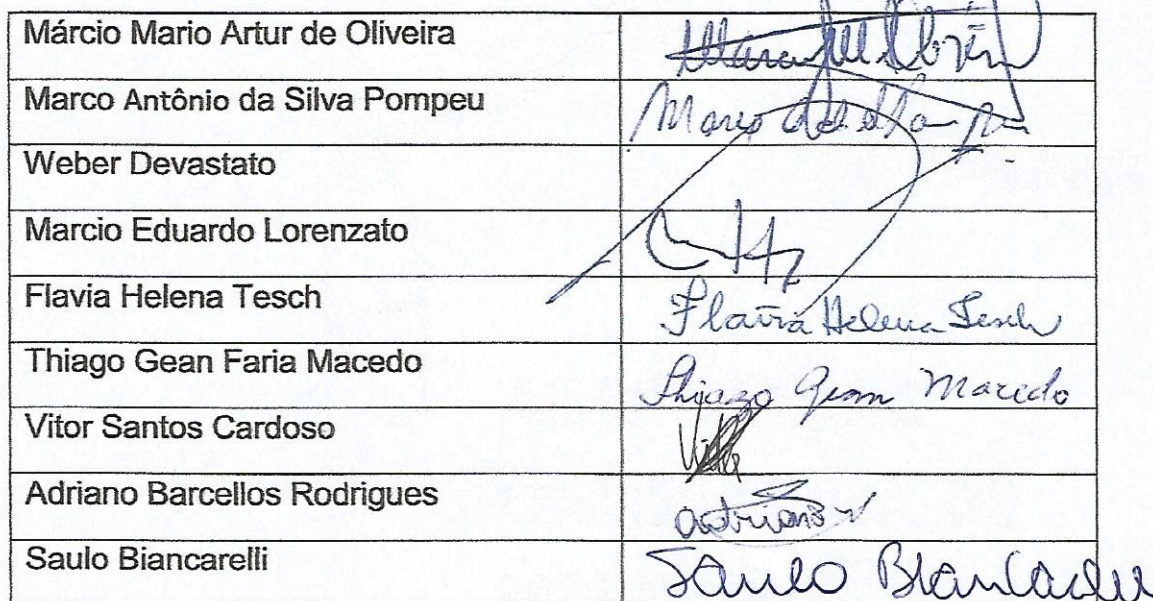 Márcio Mario Artur de Oliveira
Marco Antônio da Silva Pompeu Marco
Weber Devastato
Marcio Eduardo Lorenzato
Flavia Helena Tesch Flavia Helena Tesch
Thiago Gean Faria Macedo Thiago Gean Macedo
Vitor Santos Cardoso
Adriano Barcellos Rodrigues Adriano
Saulo Biancarelli Saulo Biancarelli